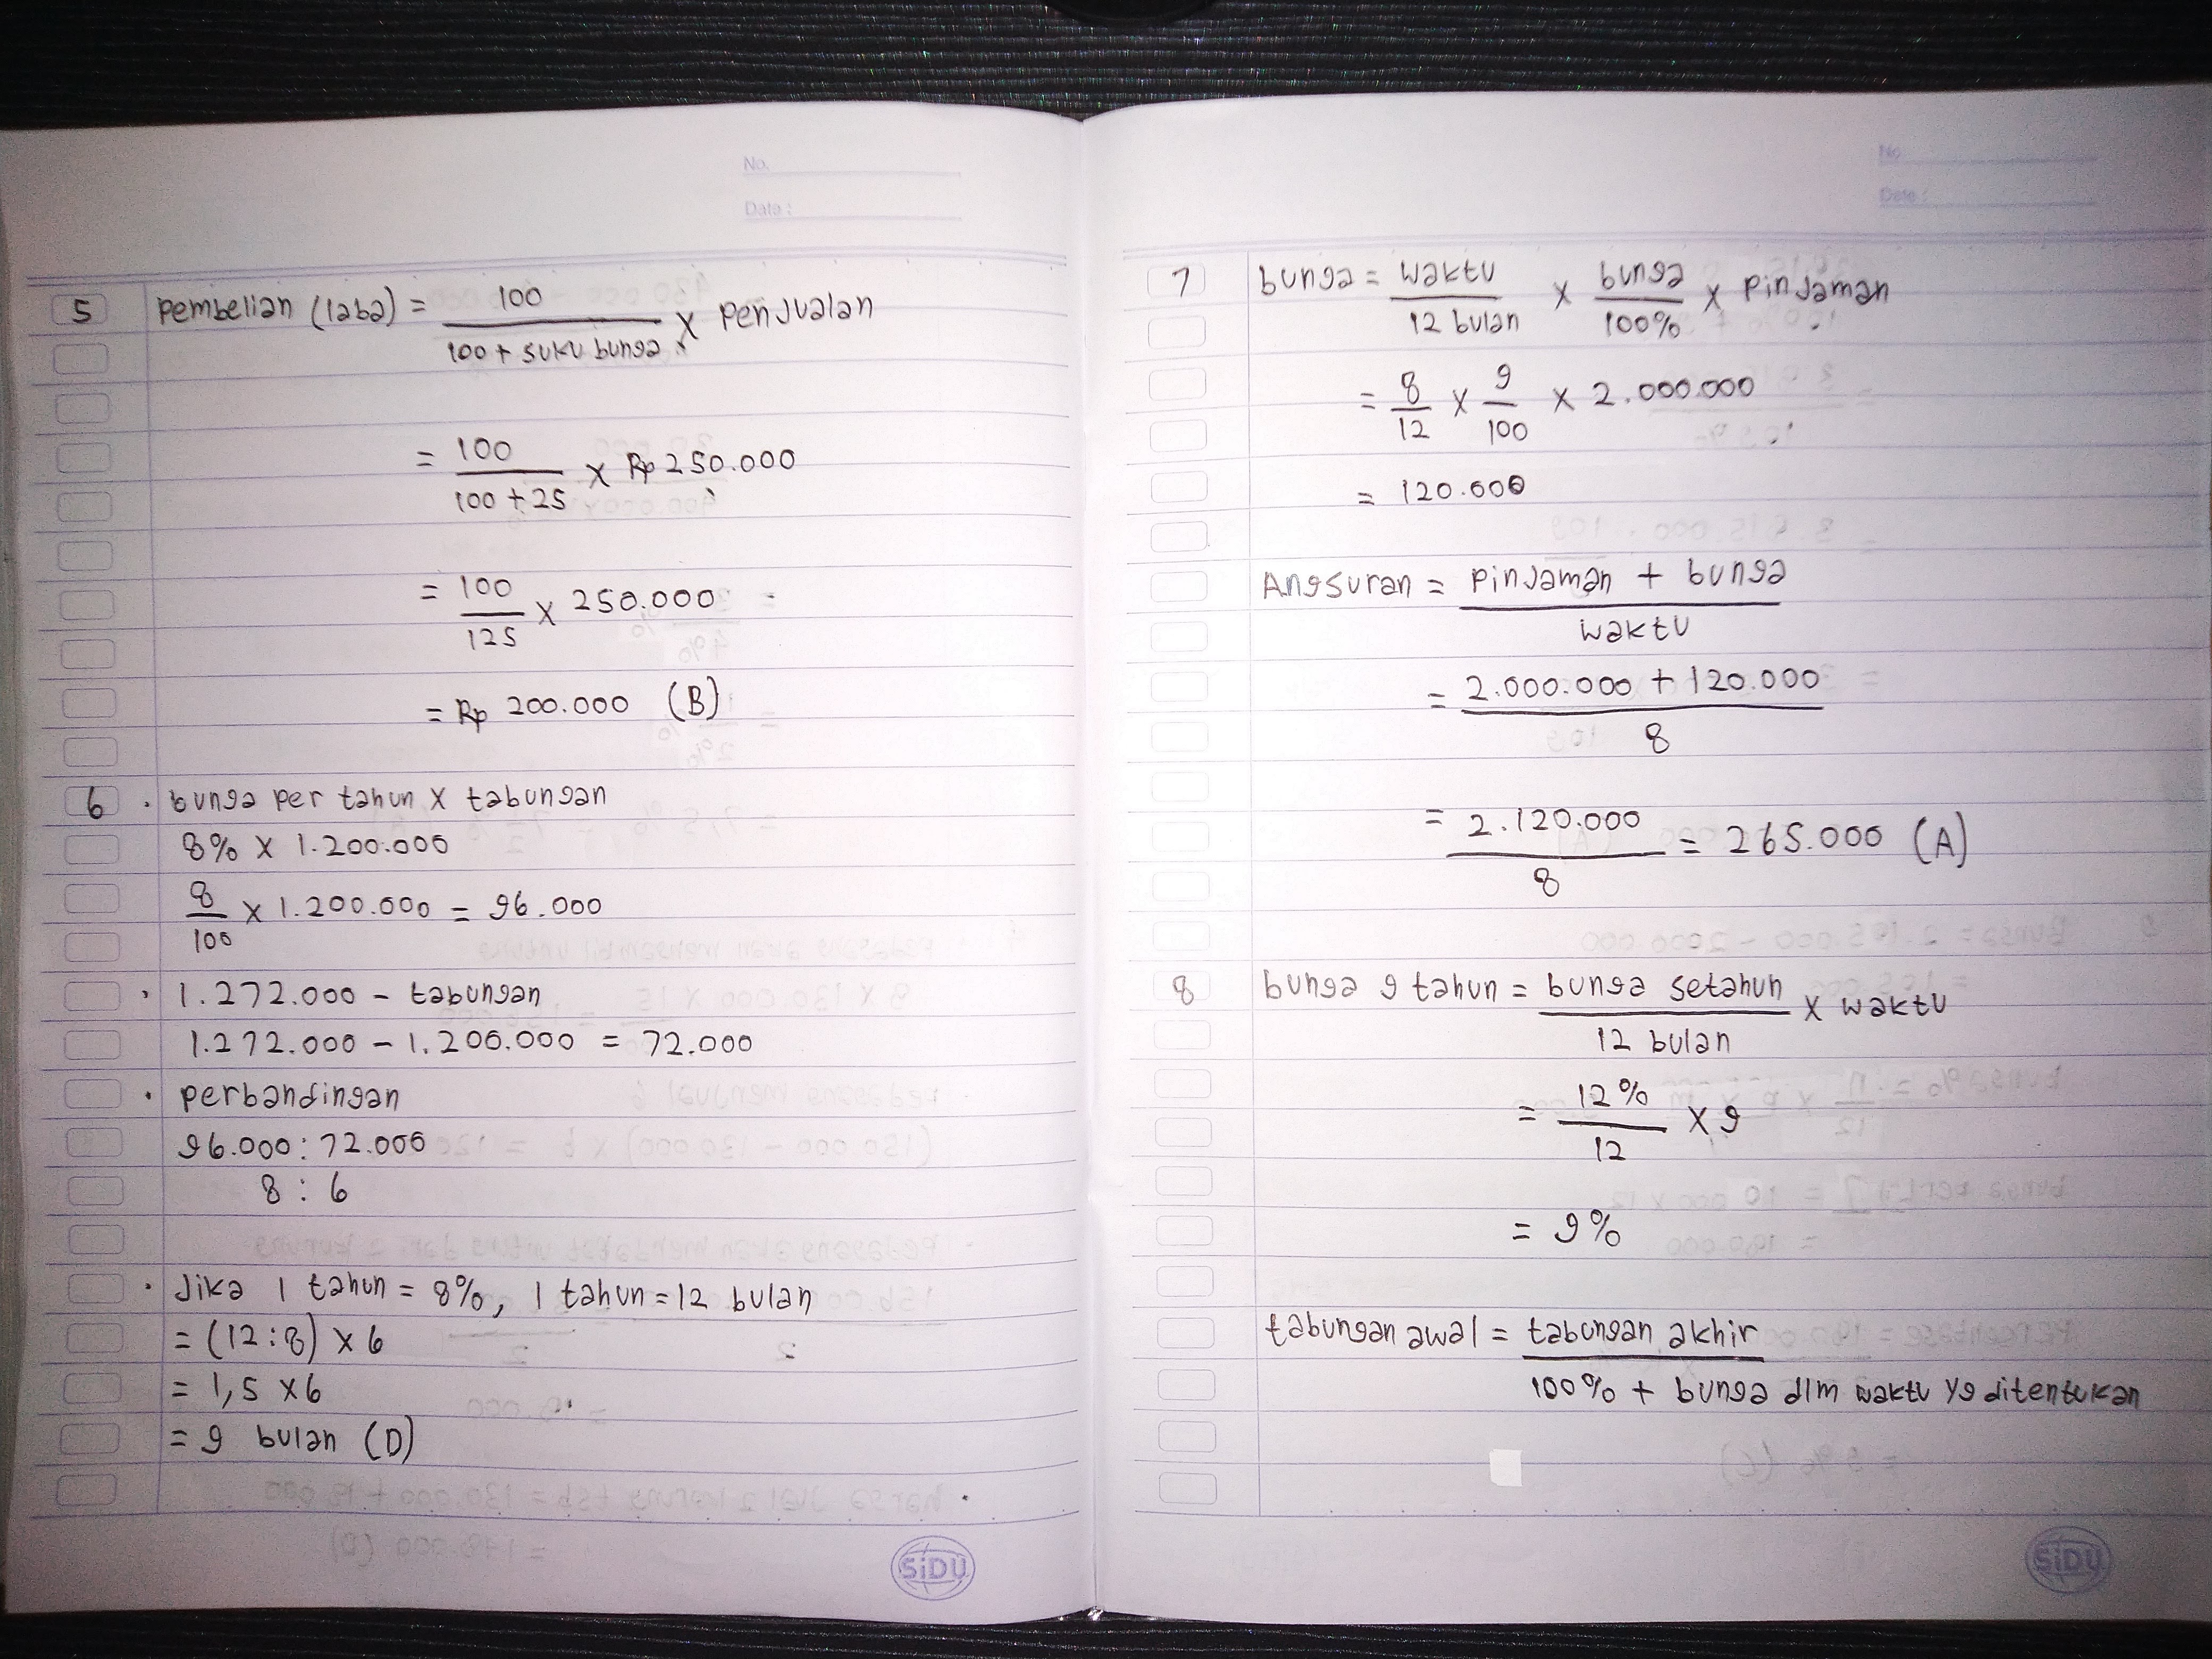 No.
Date :
5 pembelian (laba) = 100 / 100 + suku bunga x penjualan
= 100 / 100 + 25 x Rp 250.000
= 100 / 125 x 250.000
= Rp 200.000 (B)
6 . bunga per tahun x tabungan
8% x 1.200.000
8 / 100 x 1.200.000 = 96.000
. 1.272.000 - tabungan
1.272.000 - 1.200.000 = 72.000
. perbandingan
96.000 : 72.000
8 : 6
. Jika 1 tahun = 8%, 1 tahun = 12 bulan
= (12 : 8) x 6
= 1,5 x 6
= 9 bulan (D)
SiDU
No
Date :
7 bunga = waktu / 12 bulan x bunga / 100% x pinjaman
= 8 / 12 x 9 / 100 x 2.000.000
= 120.000
Angsuran = pinjaman + bunga / waktu
= 2.000.000 + 120.000 / 8
= 2.120.000 / 8 = 265.000 (A)
8 bunga 9 tahun = bunga setahun / 12 bulan x waktu
= 12% / 12 x 9
= 9%
tabungan awal = tabungan akhir / 100% + bunga dlm waktu yg ditentukan
SiDU